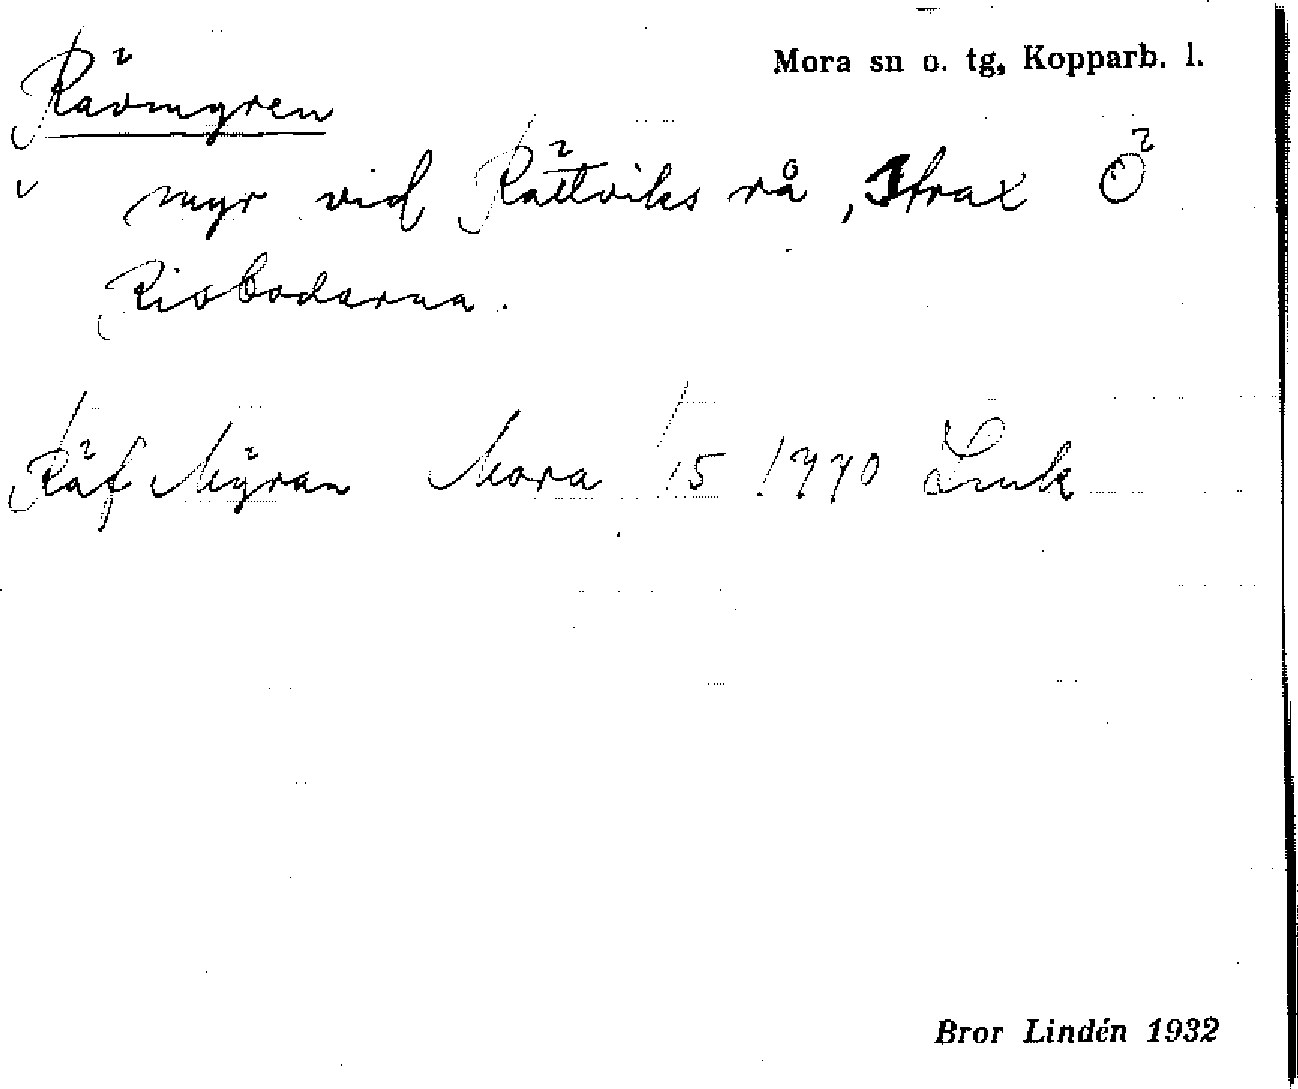 Mora sn o. tg, Kopparb. l.
Rävmyren
myr vid Rättviks rå, strax Ö
Risbodarna.
Räf Myran Mora 15 1770 Lmk
Bror Lindén 1932